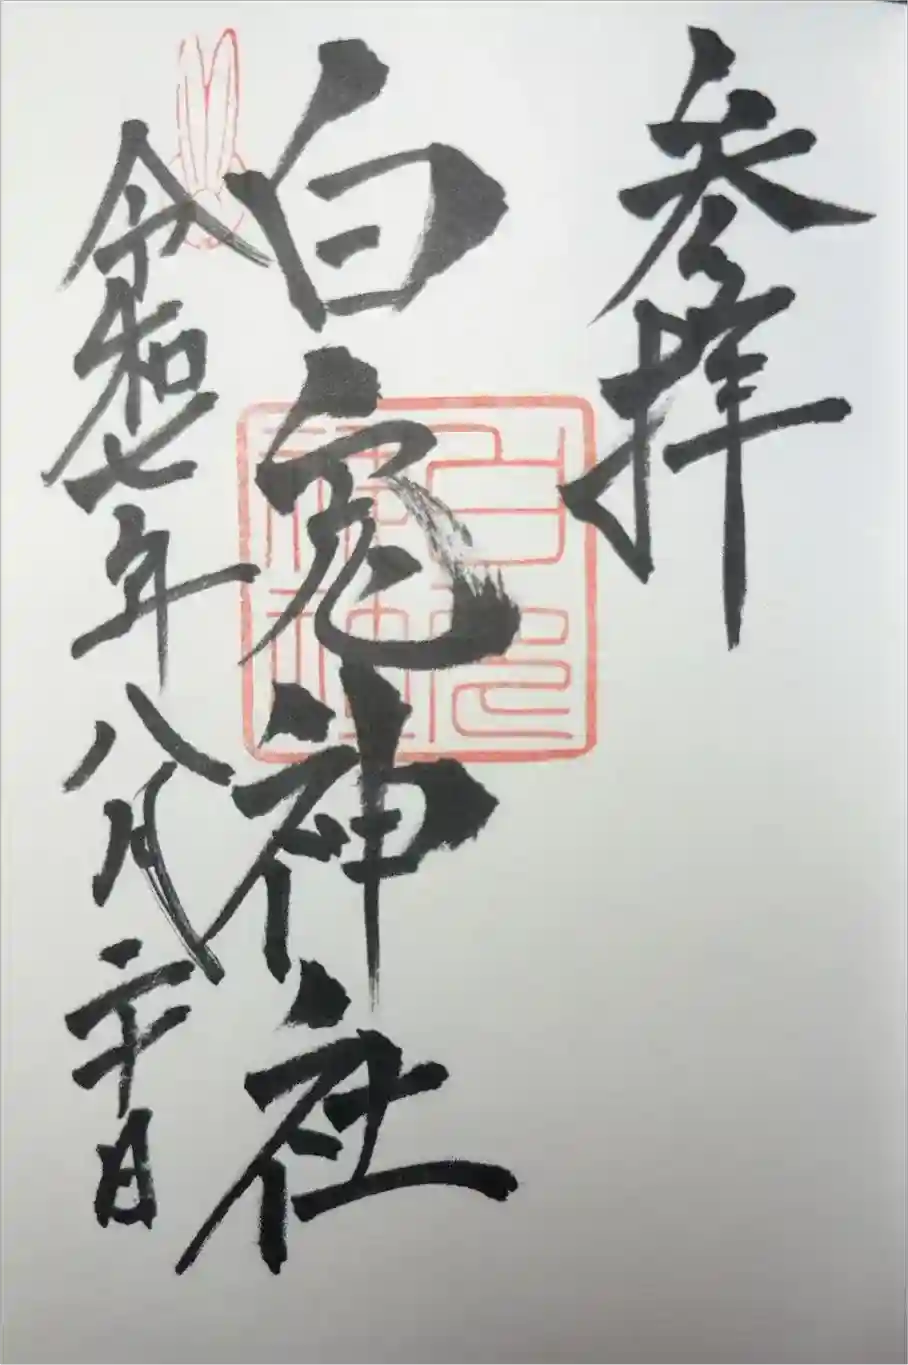 参拝
白兎神社
令和七年八月二十日
白兎神社